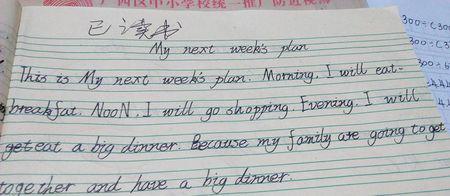 广西区中小学校统一推广防近视簿
已读书
My next week's plan
This is My next week's plan. Morning. I will eat
breakfat. NooN. I will go shopping. Evening. I will
eat a big dinner. Because my family are going to get
together and have a big dinner.